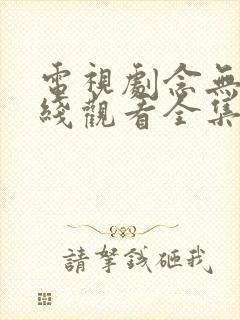 電視劇念無
綫觀看全集
請拏錢砸我